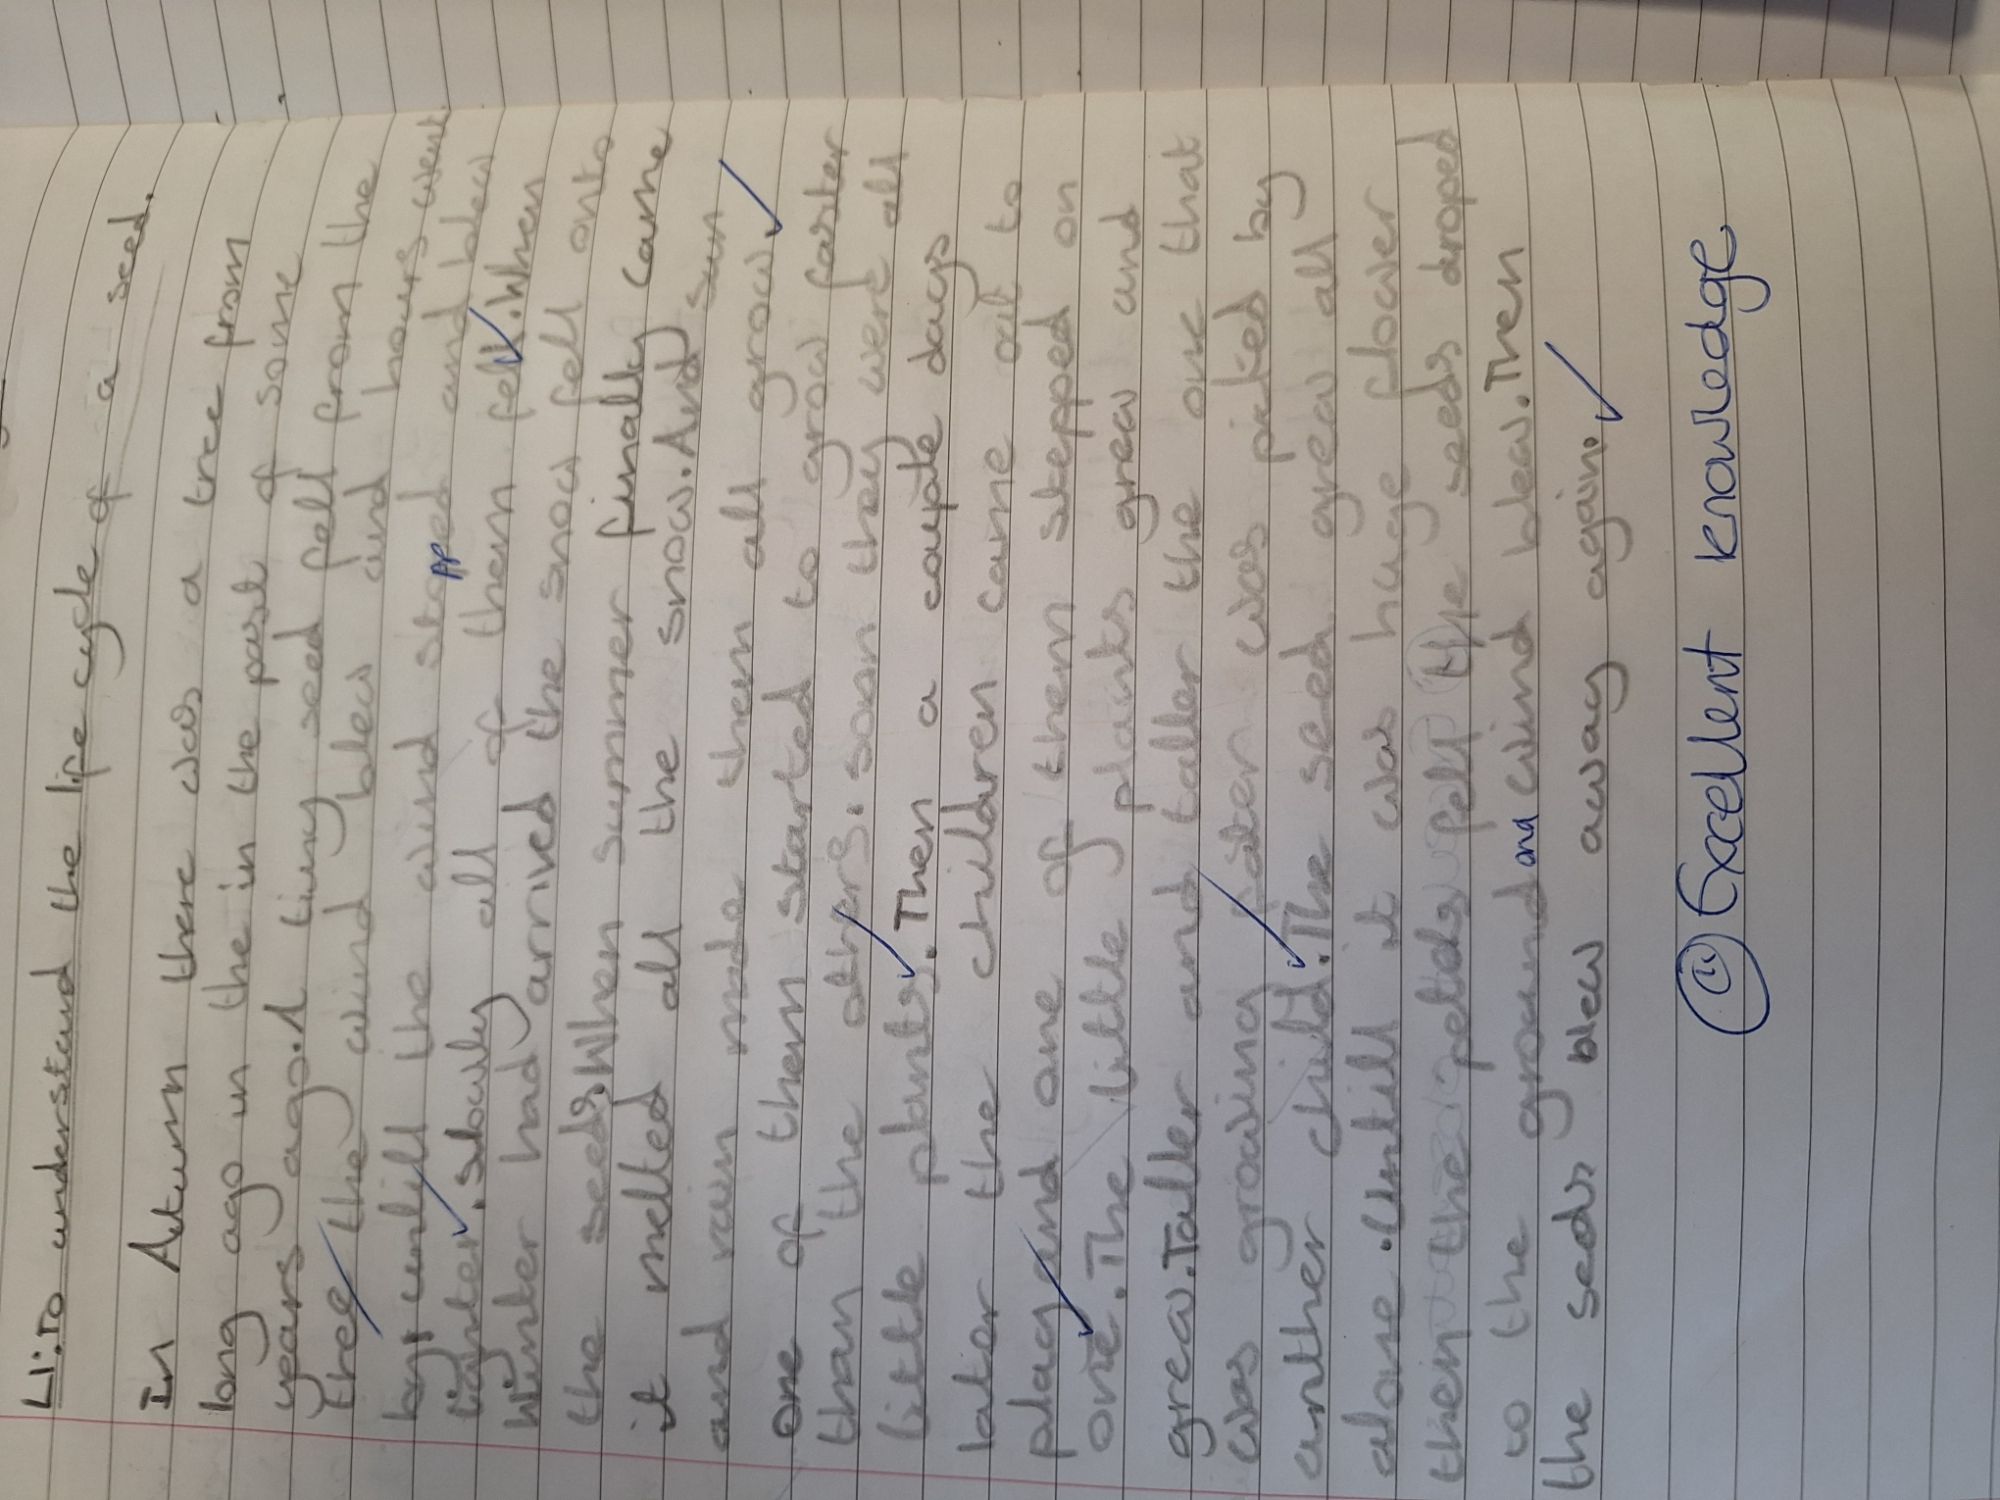 LI: To understand the life cycle of a seed.
In Autumn there was a tree from
long ago in the in the past of some
years ago. A tiny seed fell from the
tree the wind blew and hours went
by, untill the wind stopped and blew
lighter. slowly all of them fell. When
Winter had arrived the snow fell onto
the seeds. When summer finally came
it melted all the snow. And sun
and rain made them all grow.
one of them started to grow faster
than the others. soon they were all
little plants. Then a couple days
later the children came out to
play and one of them stepped on
one. The little plants grew and
grew. Taller and taller the one that
was growing faster was picked by
anther child. The seed grew all
alone. Untill it was huge flower
then the petals fell the seeds droped
to the ground and wind blew. Then
the seeds blew away again.
Excellent knowledge